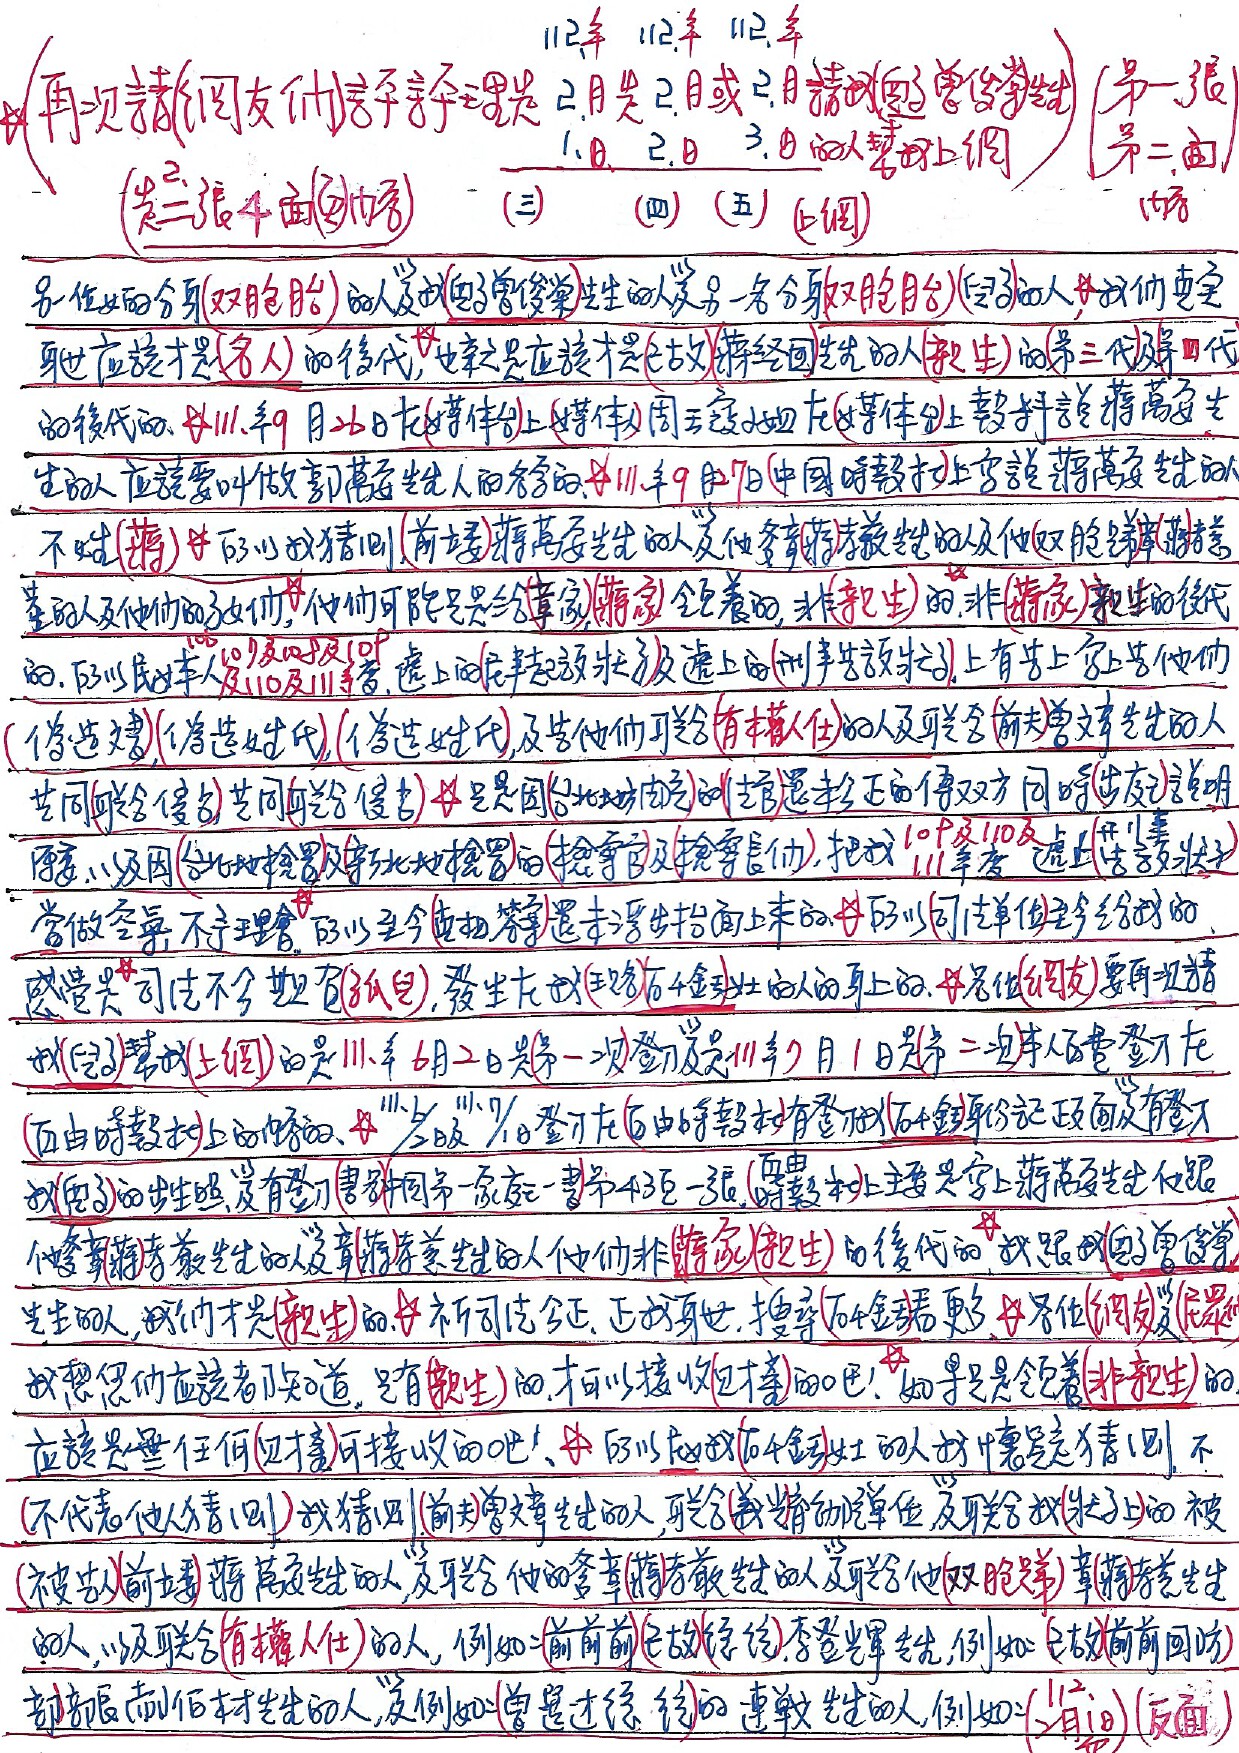 112.年 112.年 112.年
☆(再次請(網友们)評評理是 2.月是 2.月或 2.月請我(兒子)曾俊棠先生)(第一張
1.日. 2.日 3.日的人幫我上網) 第二.面)
(是2.二張4面(到)內容) (三) (四) (五) (上網) 內容
另一位她的分身(双胞胎)的人及我(兒子曾俊棠)先生的人及另一名分身(双胞胎)(兒子)的人,☆我们真实
身世应該才是(名人)的後代,☆也就是应該才是(已故)(蔣經國)先生的人(親生)的(第三代及第四代
的後代的.☆111.年9月26日在(媒体台)上(媒体人)周玉寇小姐在(媒体台)上報料說蔣萬安先
生的人应該要叫做郭萬安先生人的名字的.☆111.年9月27日(中國時報社)上寫說蔣萬安先生的人
不姓(蔣)☆所以我猜測(前立委)蔣萬安先生的人及他爹章(蔣)孝嚴先生的人及他(双胞兄弟)章(蔣)孝慈
生的人及他们的子女们,☆他们可能只是給(章家)(蔣家)領養的,非(親生)的,☆非(蔣家)親生的後代
的.所以民女本人106 107及108及109及110及111年度.遞上的(民事起訴狀子)及遞上的(刑事告訴狀子)上有告上寫上告他们
(偽造文書),(偽造姓氏),(偽造姓氏),及告他们联合(有权人仕)的人及联合(前夫)曾文章先生的人
共同(联合侵占)共同(联合侵占)☆只是因(台北地方法院)的(法官)還未公正的傳双方同時(出庭)說明
原委,以及因(台北地檢署及新北地檢署)的(檢察官及檢察長们),把我109及110及111年度遞上(刑事告訴狀子)
當做空氣,不予理會☆所以至今(真相答案)還未浮出抬面上來的.☆所以(司法單位)至今給我的.
感覺是☆司法不公,豈有(孤兒),發生在我(王路)石千金女士的人的身上的.☆各位(網友)要再次請
我(兒子)幫我(上網)的是111.年6月2日是(第一次)登刊及是111年7月1日是(第二次)本人自費登刊在
(自由時報社)上的內容的.☆111.6/2日及111.7/1日登刊在(自由時報社)有登刊我(石千金)身份証正反面及有登刊
我(兒子)的出生照及有登刊(書名)(中國第一家庭)一書第43頁一張.(自由時報社)上主要是寫上蔣萬安先生他跟
他爹章(蔣)孝嚴先生的人及章(蔣)孝慈先生的人他们非(蔣家)(親生)的後代的☆我跟我(兒子曾俊棠)
先生的人,我们才是(親生)的.☆祈司法公正.正我身世.搜尋(石千金)看更多.☆各位(網友)及(民眾们)
我想您们应該都知道.只有(親生)的.才可以接收(財產)的吧!☆如果只是領養(非親生)的
应該是無任何(財產)可接收的吧!☆所以民女我(石千金)女士的人我懷疑猜測.不
(不代表他人猜測)我猜測(前夫)曾文章先生的人,联合(義光育幼院)單位及联合我(狀子)上的被
(被告人)(前立委)蔣萬安先生的人,及联合他的爹章(蔣)孝嚴先生的人及联合他(双胞兄弟)章(蔣)孝慈先生
的人,以及联合(有权人仕)的人,例如=(前前前)(已故)(總統)李登輝先生,例如=(已故)(前前國防
部)部長(郝)伯村先生的人,及例如=(曾選过總統)的連戰先生的人,例如=(112.2月1日)(反面)